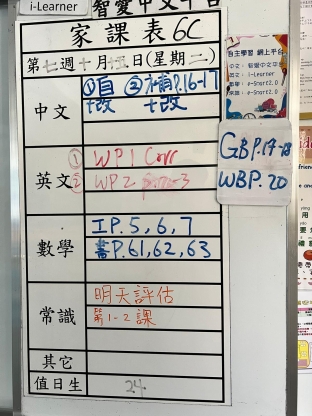 i-Learner
智愛中文平台
家課表6C
第七週十月十五日(星期二)
中文
①頁 ②補P.16-17
+改 +改
自主學習 網上平台
中文 : 智愛中文平台
英文 : i-Learner
數學 : e-Smart2.0
常識 : e-Smart2.0
GBP.17-18
WBP.20
英文
① WP1 Corr
② WP2 p.2-3
數學
工P.5,6,7
書P.61,62,63
常識
明天評估
第1-2課
其它
值日生
24